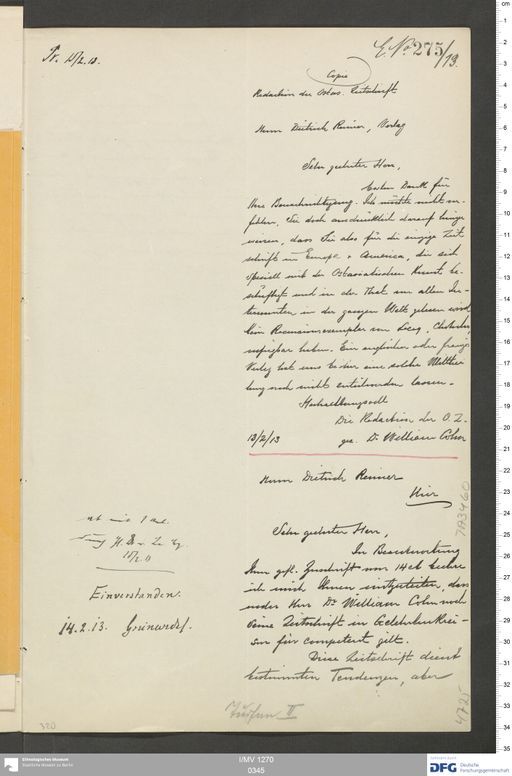 Pr. 15/2.13.
E. No 275/13.
Copie
Redaction der Ostas. Zeitschrift
Herrn Dietrich Reimer, Verlag
Sehr geehrter Herr,
besten Dank für
Ihre Benachrichtigung. Ich möchte nicht ver-
fehlen, Sie doch ausdrücklich darauf hinzu
weisen, dass Sie also für die einzige Zeit
schrift in Europa & America, die sich
speziell mit der Ostasiatischen Kunst be-
schäftigt und in der That von allen In-
teressenten in der ganzen Welt gelesen wird
kein Recensionsexemplar von Lecoq, Chotscho,
verfügbar haben. Ein englischer oder französ
Verlag hat uns bisher eine solche Mitthei
lung noch nicht entbieten lassen.
Hochachtungsvoll
Die Redaction der O. Z.
13/2/13 gez. Dr William Cohn
Herrn Dietrich Reimer
Hier
Sehr geehrter Herr,
In Beantwortung
Ihrer gefl. Zuschrift vom 14ct beehre
ich mich Ihnen mitzuteilen, dass
weder Herr Dr William Cohn noch
seine Zeitschrift in Gelehrtenkrei-
sen für competent gilt.
Diese Zeitschrift dient
bestimmten Tendenzen, aber
Einverstanden.
14.2.13. Grünwedel.
Turfan II
7A3460
4725
320
Ethnologisches Museum
Staatliche Museen zu Berlin
I/MV 1270
0345
DFG Deutsche
Forschungsgemeinschaft